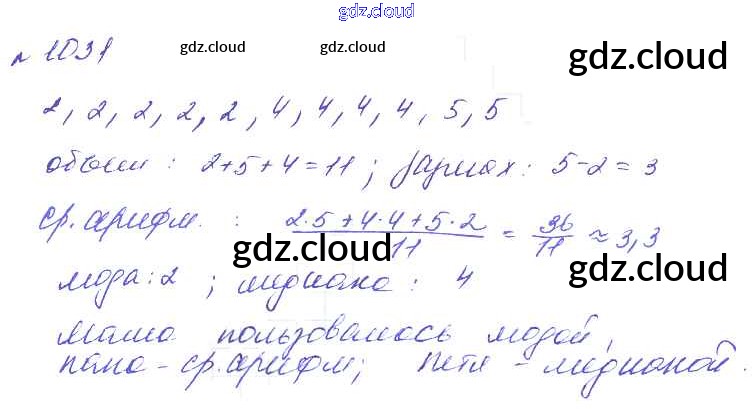 gdz.cloud
№ 1031 gdz.cloud gdz.cloud gdz.cloud
2, 2, 2, 2, 2, 4, 4, 4, 4, 5, 5
объем : 2+5+4=11 ; размах : 5-2 = 3
ср. арифм. : (2·5+4·4+5·2)/11 = 36/11 ≈ 3,3
gdz.cloud gdz.cloud
мода: 2 ; медиана : 4
мама пользовалась модой,
папа - ср. арифм; Петя - медианой.